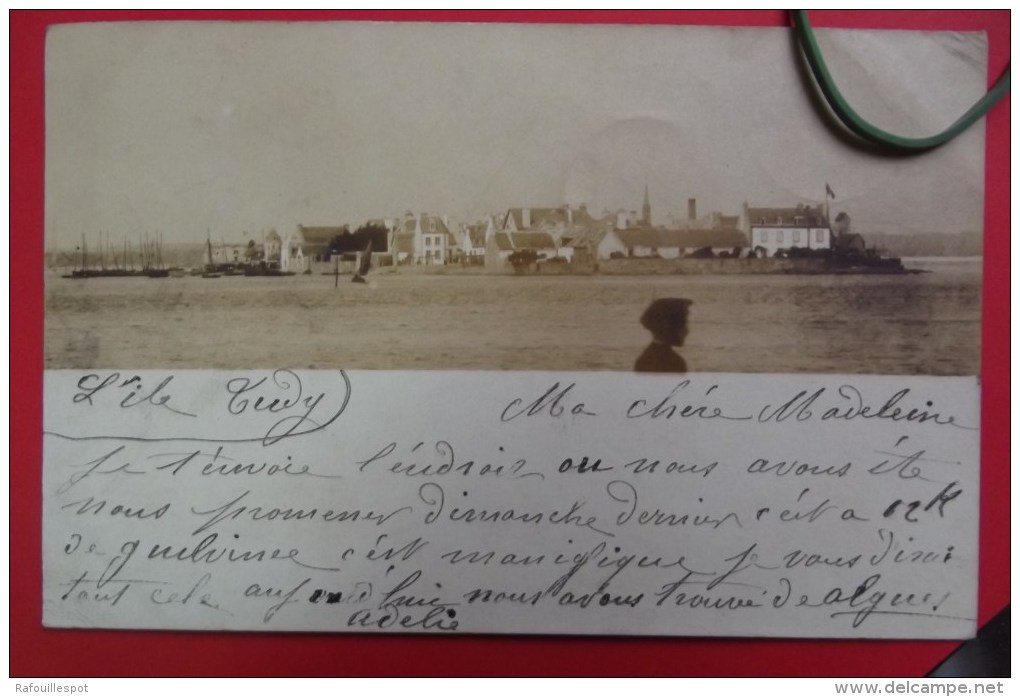 L'ile Tudy
Ma chére Madeleine
je t'envoie l'éndroit ou nous avons éte
nous promener dimanche dernier c'ést a 12 K
de guilvinec c'ést manigfique je vous dirai
tout cela aujourd'huie nous avons trouvé de algues
adelie
Rafouillespot
www.delcampe.net